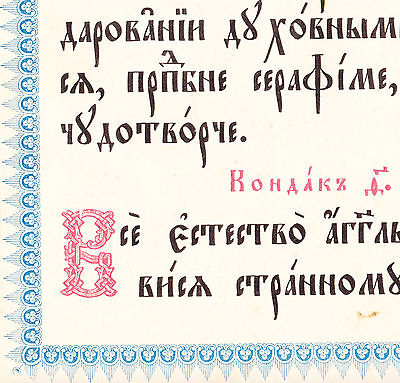 дарова́нїи дꙋхо́вными
сѧ, прпⷣбне серафі́ме,
чꙋдотво́рче.
Конда́къ д҃.
Всѐ є҆стество̀ а҆́гг҃ль
ви́сѧ стра́нномꙋ